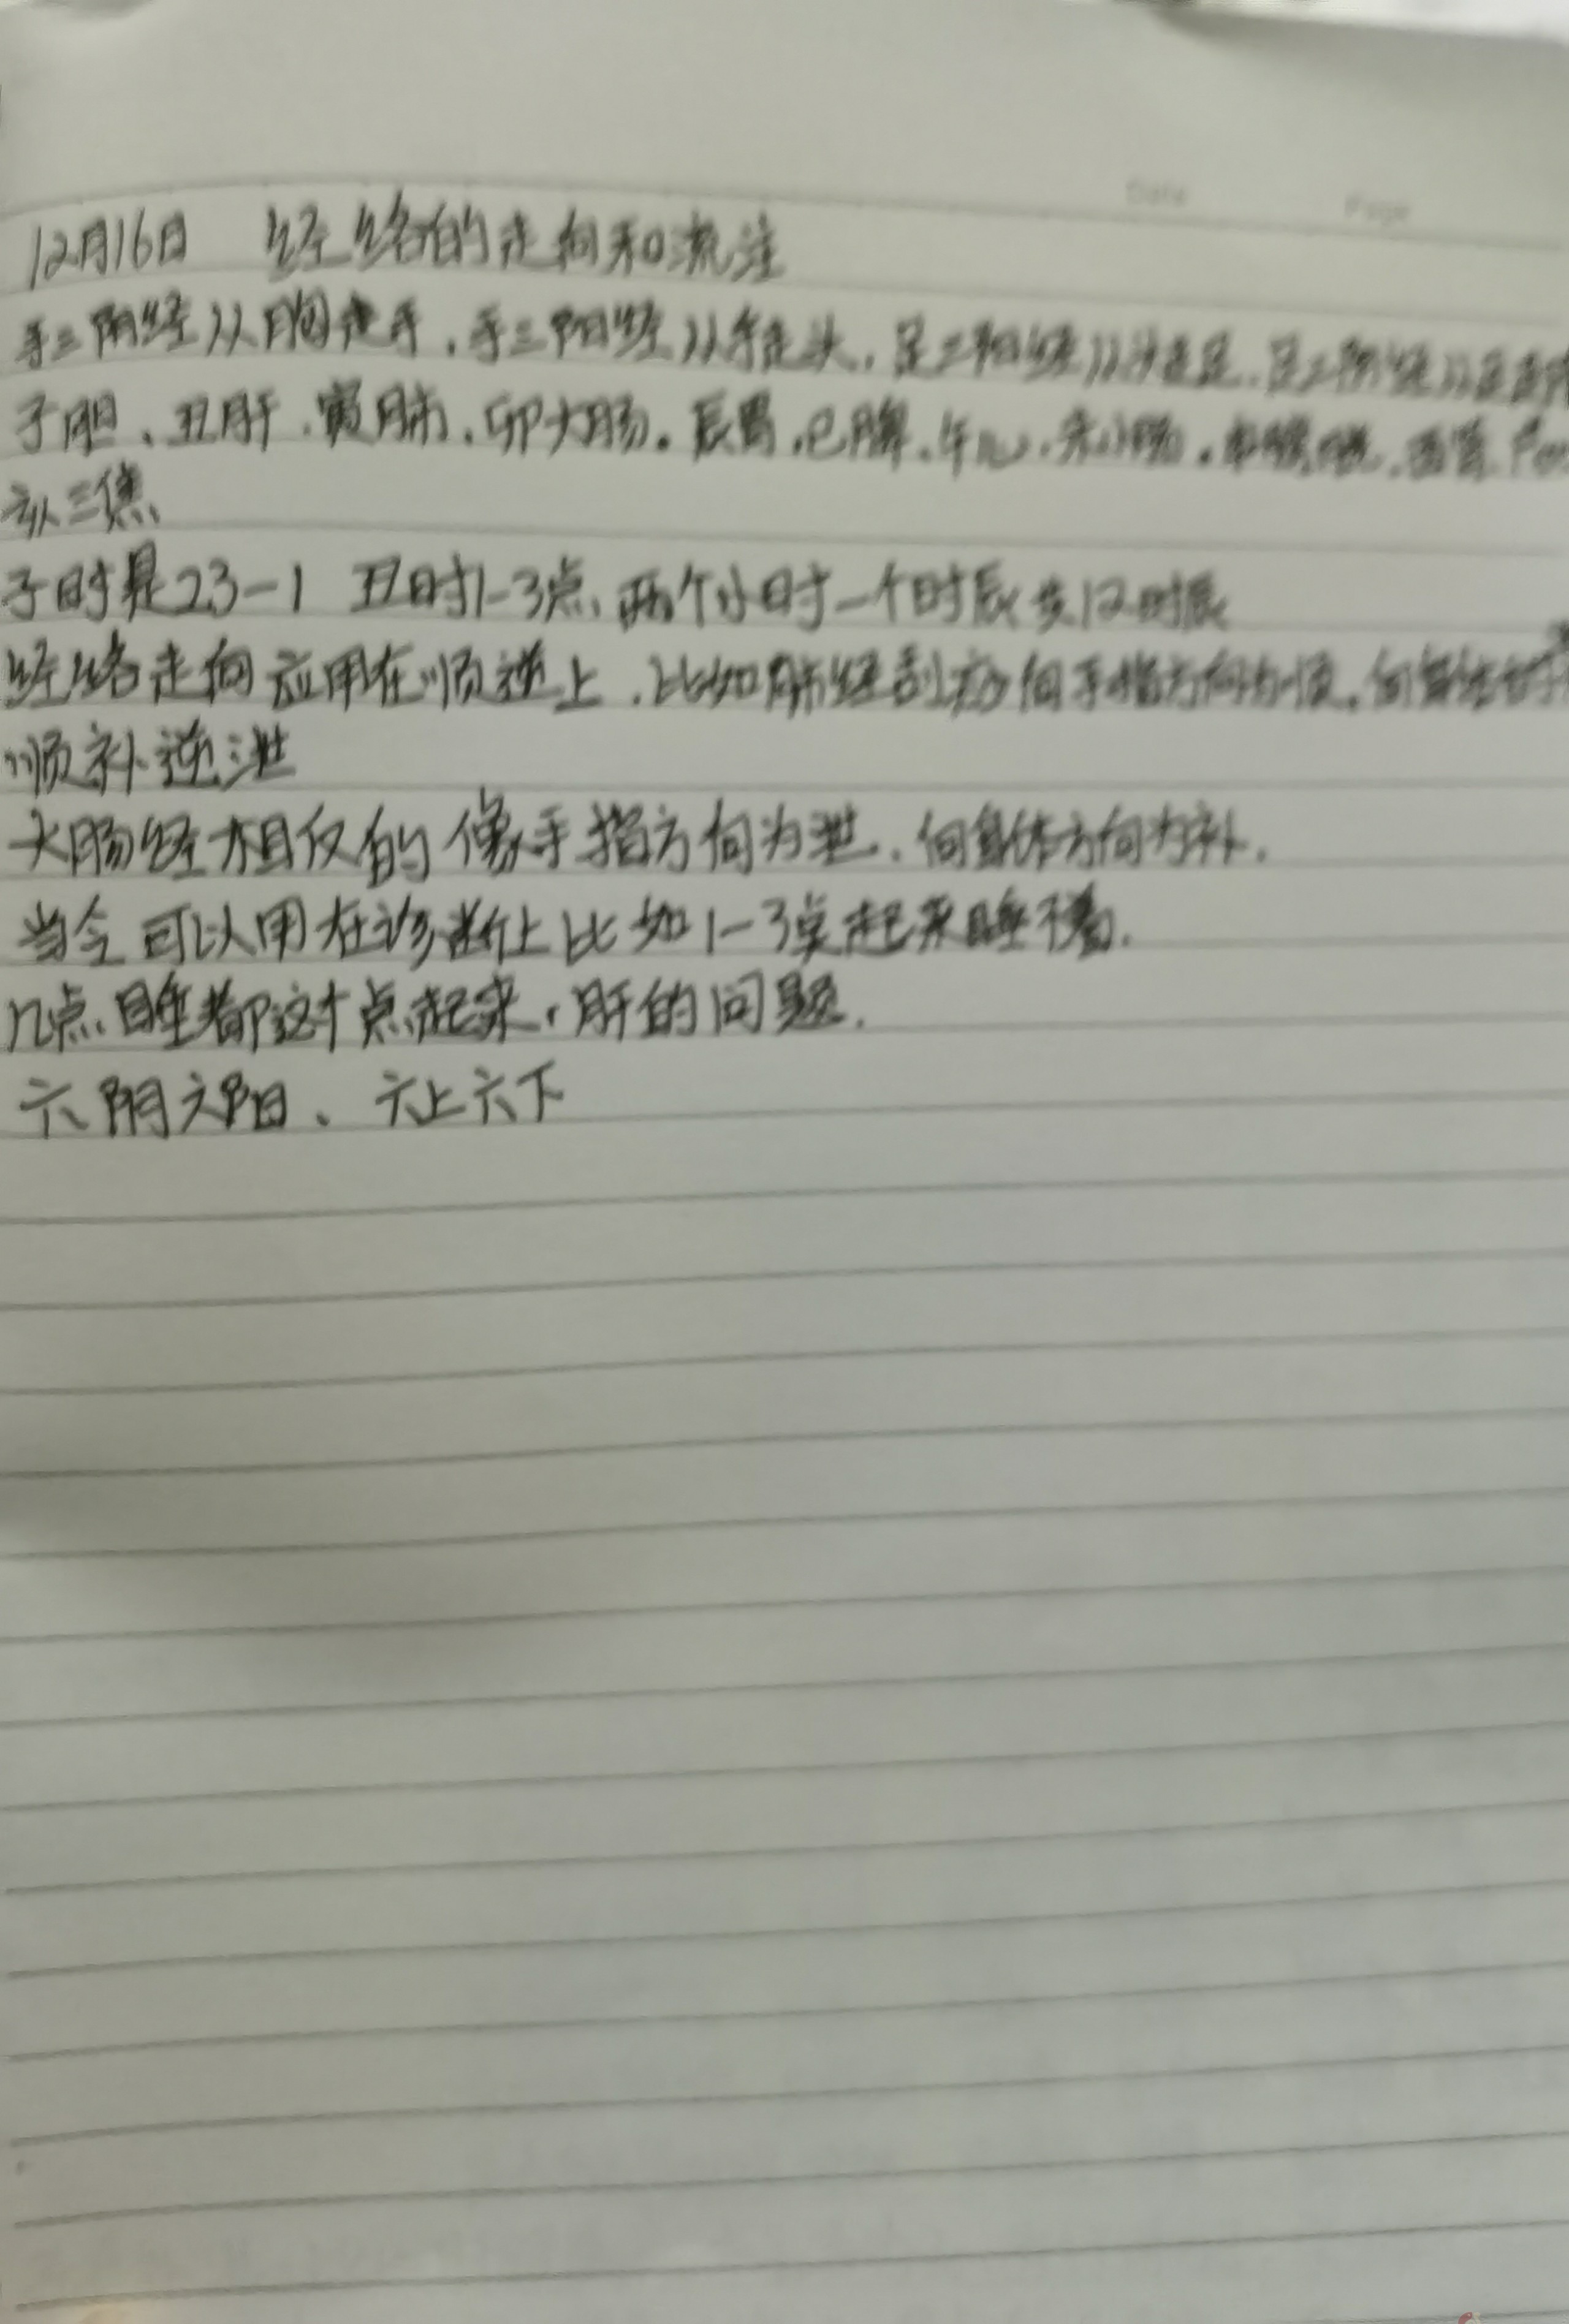 Date Page
12月16日 经络的走向和流注
手三阴经从胸走手,手三阳经从手走头,足三阳经从头走足,足三阴经从足走
子胆、丑肝、寅肺、卯大肠。辰胃,巳脾、午心、未小肠。申膀胱、酉肾
亥三焦
子时是23-1 丑时1-3点、两个小时一个时辰 12时辰
经络走向应用在顺逆上,比如肺经刮痧向手指方向为顺。向身体
顺补逆泄
大肠经相反的 像手指方向为泄、向身体方向为补。
当令可以用在诊断上比如1-3点起来睡不着.
几点睡都这个点起来,肝的问题.
六阴六阳、六上六下